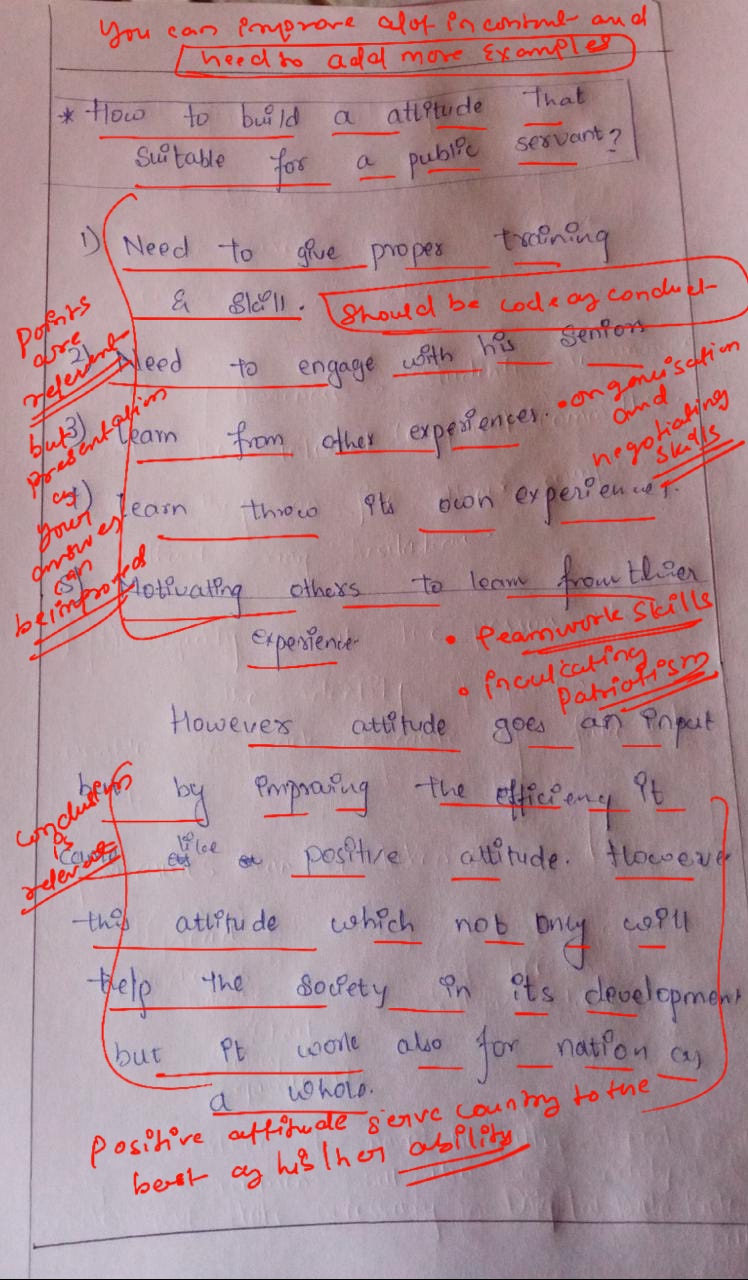 You can improve alot in content and
need to add more Examples
* How to build a attitude That
Suitable for a public servant?
1) Need to give proper training
& Skill.
Should be code of conduct
Points
are
relevant
2) Need to engage with his Seniors
3) Learn from other experiences.
• organisation
and
negotiating
skills
but
presentation
of
your
answer
can
be improved
4) Learn throw its own experiences.
5) Motivating others to learn from thier
experience.
• Teamwork skills
• inculcating
Patriotism
However attitude goes an input
by the efficieny it
conclusion
is
relevant
like a positive attitude. However
this attitude which not only will
help the Society in its development
but it work also for nation as
a whole.
Positive attitude serve country to the
best of his/her ability